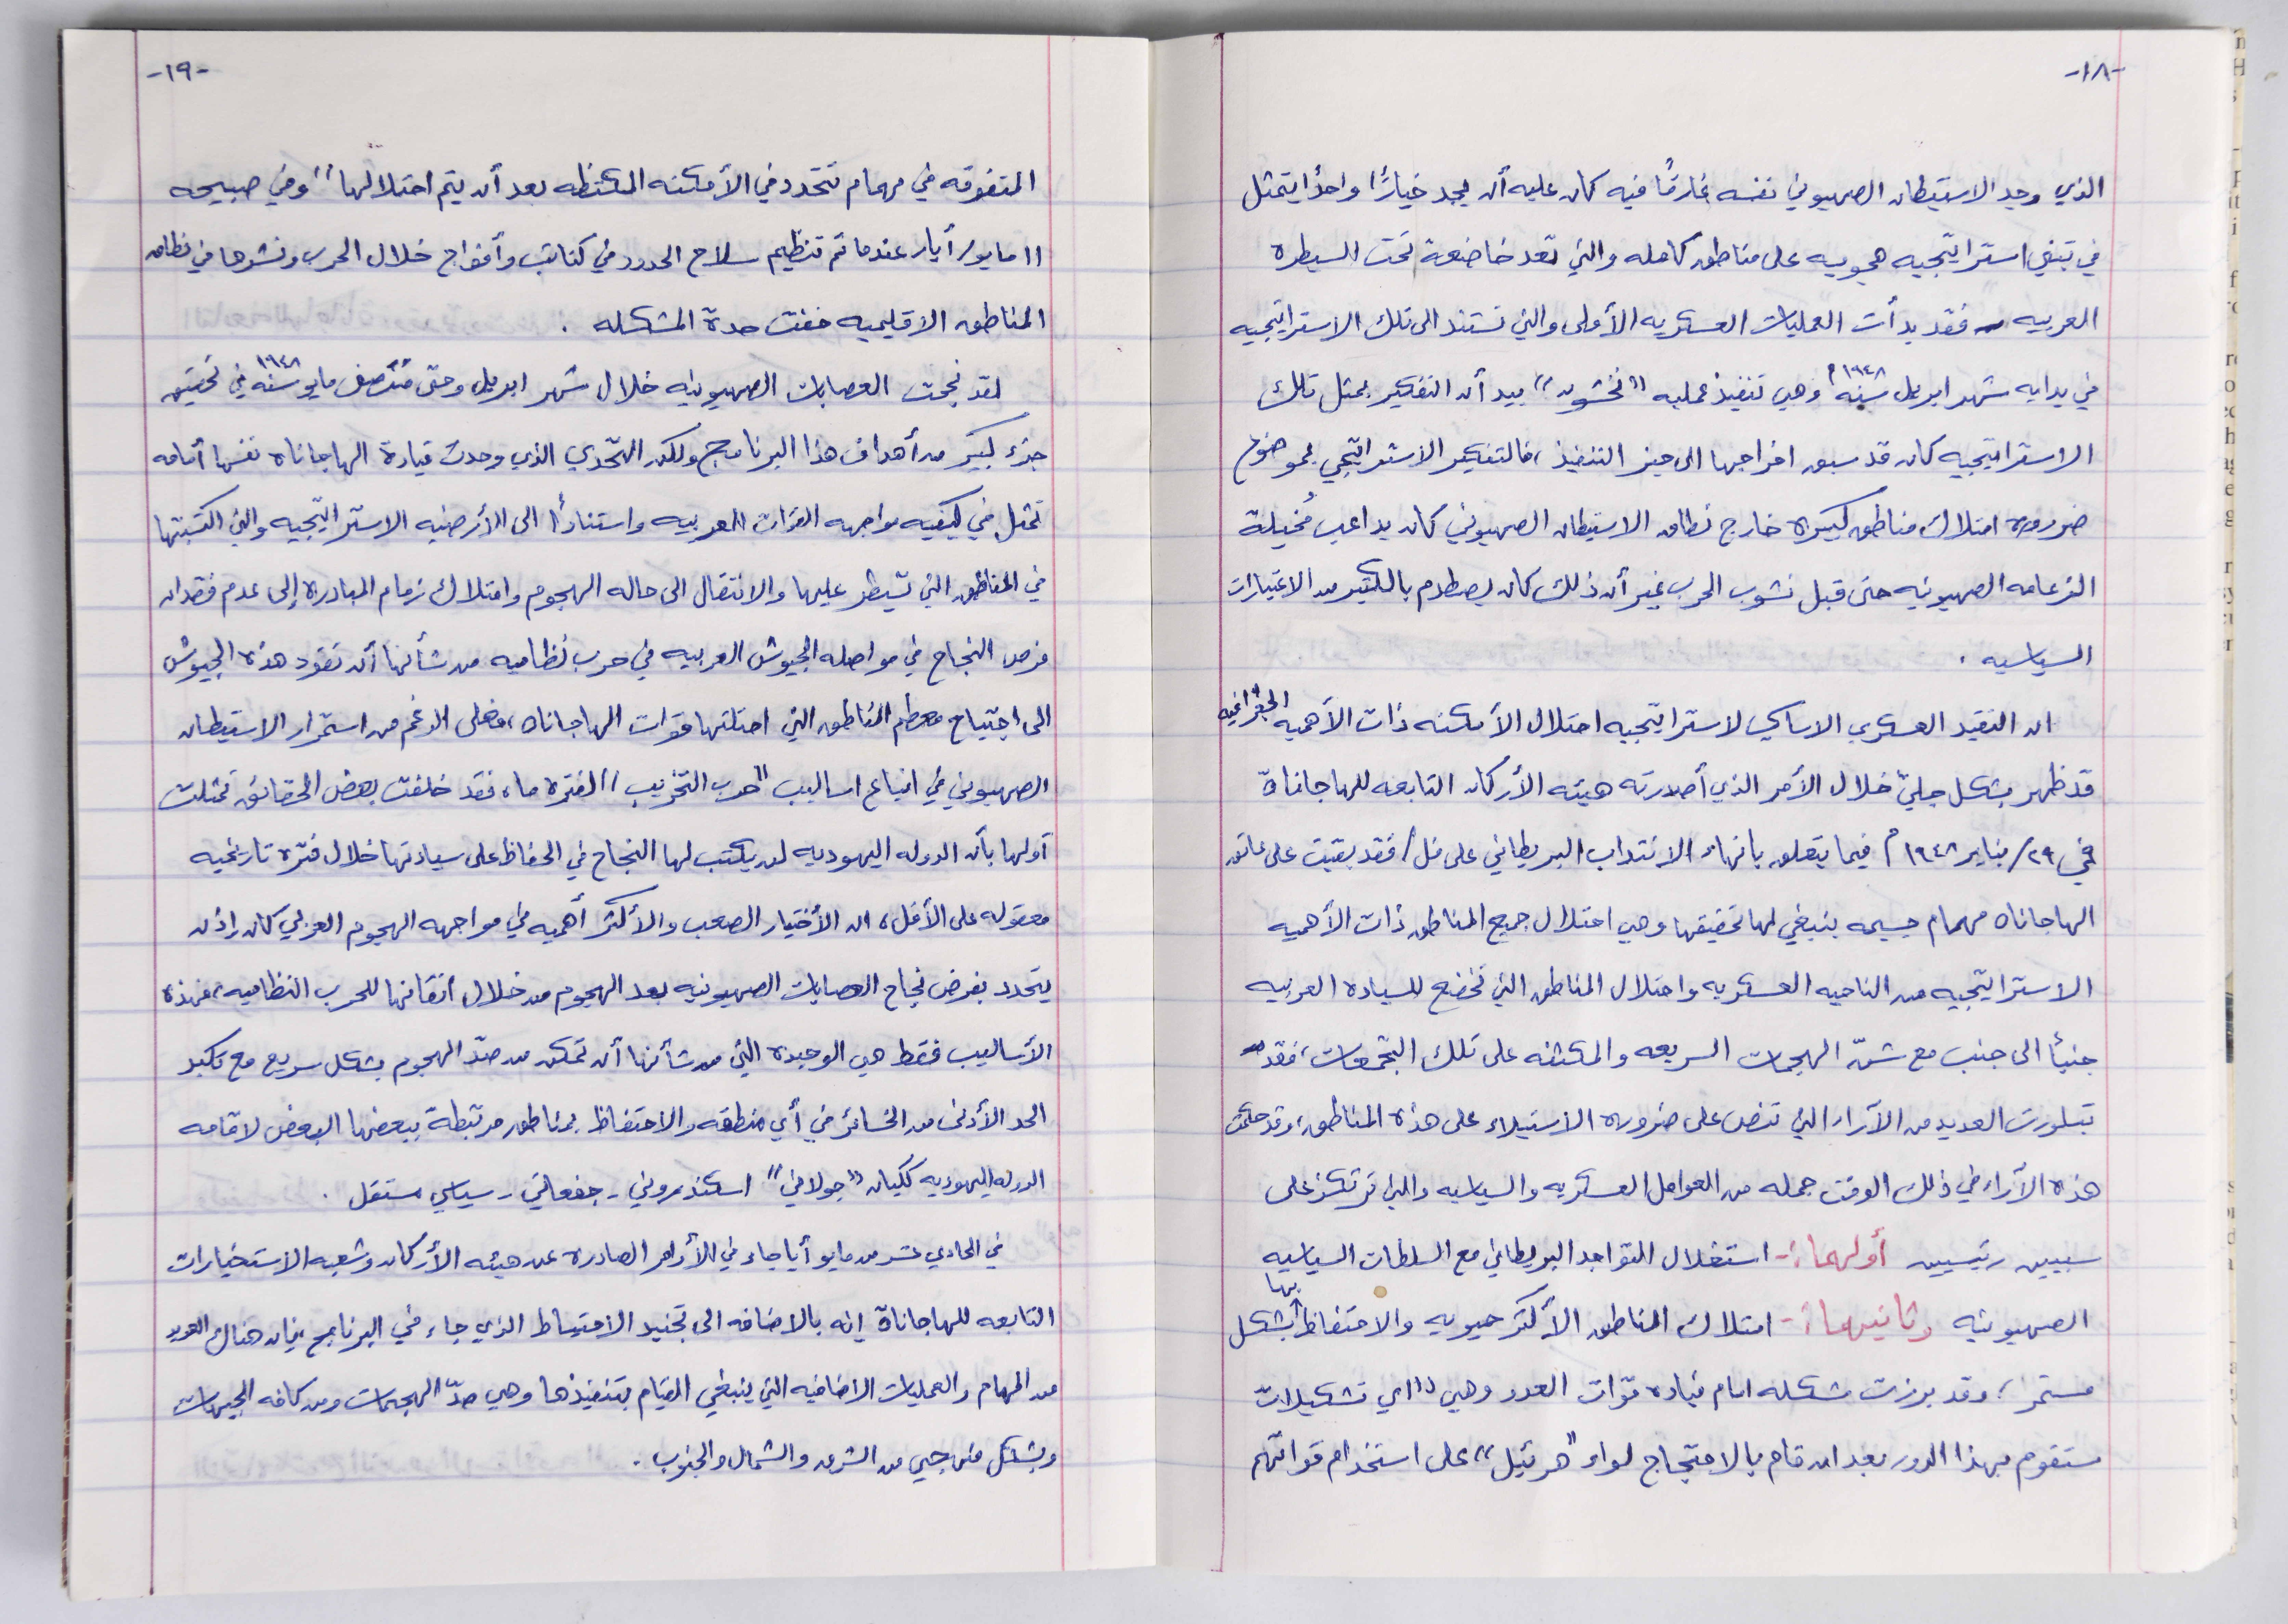 -١٨-
الذي وجد الاستيطان الصهيوني نفسه غارقًا فيه كان عليه أن يجد خيارًا واحدًا يتمثل
في تبني استراتيجيه هجوميه على مناطق كامله والتي تعد خاضعة تحت السيطره
العربيه فقد بدأت العمليات العسكريه الأولى والتي تستند الى تلك الاستراتيجيه
في بدايه شهر ابريل سنه ١٩٤٨م وهي تنفيذ عمليه "نخشون" بيد أن التفكير بمثل تلك
الاستراتيجيه كان قد سبق اخراجها الى حيز التنفيذ، فالتفكير الاستراتيجي بموضوع
ضروره امتلاك مناطق كبيره خارج نطاق الاستيطان الصهيوني كان يداعب مُخيلة
الزعامه الصهيونيه حتى قبل نشوب الحرب غير أن ذلك كان يصطدم بالكثير من الاعتبارات
السياسيه .
ان التقيد العسكري الاساسي لاستراتيجيه احتلال الأمكنه ذات الأهميه الجغرافيه
قد ظهر بشكل جليّ خلال الأمر الذي أصدرته هيئه الأركان التابعه للهاجاناة
في ٢٩/يناير ١٩٤٨م فيما يتعلق بانهاء الانتداب البريطاني على فقد بقيت على عاتق
الهاجاناه مهمام جسيمه ينبغي لها تحقيقها وهي احتلال جميع المناطق ذات الأهميه
الاستراتيجيه من الناحيه العسكريه واحتلال المناطق التي تخضع للسياده العربيه
جنبأ الى جنب مع شنّ الهجمات السريعه والمكثفه على تلك التجمعات، فقد
تبلورت العديد من الآراء التي تنص على ضروره الاستيلاء على هذه المناطق، وقد حكمت
هذه الآراء في ذلك الوقت جمله من العوامل العسكريه والسياسيه والتي ترتكز على
سببين رئيسيين أولهما :- استغلال التواجد البريطاني مع السلطات السياسيه
الصهيونيه وثانيهما :- امتلاك المناطق الأكثر حيويه والاحتفاظ بها بشكل
مستمر، وقد برزت مشكله امام قياده قوّات العدو وهي "اي تشكيلات
ستقوم بهذا الدور بعد ان قام بالاحتجاج لواء "هرئيل" على استخدام قواتهم
-١٩-
المتفوقه في مهمام تتحدد في الأمكنه المكتظه بعد أن يتم احتلالها" وفي صبيحه
١١ مايو/أيار عندما تم تنظيم سلاح الحدود في كتائب وأفواج خلال الحرب ونشرها في نطاق
المناطق الاقليميه خفت حدة المشكله .
لقد نجحت العصابات الصهيونيه خلال شهر ابريل وحتى منتصف مايو سنه ١٩٤٨ في تحقيق
جزء كبير من أهداف هذا البرنامج ولكن التحّدي الذي وجدت قيادة الهاجاناه نفسها أمامه
تمثل في كيفيه مواجهه القوات العربيه واستنادأ الى الأرضيه الاستراتيجيه والتي اكتسبتها
في المناطق التي تسيطر عليها والانتقال الى حاله الهجوم وامتلاك زمام المبادره إلى عدم فقدان
فرص النجاح في مواصله الجيوش العربيه في حرب نظاميه من شأنها أن تقود هذه الجيوش
الى اجتياح معظم المناطق التي احتلتها قوات الهاجاناه، فعلى الرغم من استمرار الاستيطان
الصهيوني في اتباع اساليب "حرب التخريب" لفتره ما، فقد خلفت بعض الحقائق تمثلت
أولها بأن الدوله اليهوديه لن يكتب لها النجاح في الحفاظ على سيادتها خلال فترة تاريخيه
معقوله على الأقل، ان الأختيار الصعب والأكثر أهميه في مواجهه الهجوم العربي كان إذن
يتحدد بفرض نجاح العصابات الصهيونيه بعد الهجوم من خلال اتقانها للحرب النظاميه، فهذه
الأساليب فقط هي الوحيدة التي من شأنها أن تمكن من صدّ الهجوم بشكل سريع مع تكبد
الحد الأدنى من الخسائر في أي منطقه والاحتفاظ بمناطق مرتبطة ببعضها البعض لاقامه
الدوله اليهوديه ككيان "جولاني" اسكندروني - جفعاتي - سياسي مستقل .
في الحادي عشر من مايو أيا جاء في الأوامر الصادره عن هيئه الأركان وشعبه الاستخبارات
التابعه للهاجاناة إنه بالاضافه الى تجنيد الاحتياط الذي جاء في البرنامج، فإن هناك العديد
من المهام والعمليات الاضافيه التي ينبغي القيام بتنفيذها وهي صدّ الهجمات ومن كافه الجبهات
وبشكل منهجي من الشرق والشمال والجنوب .